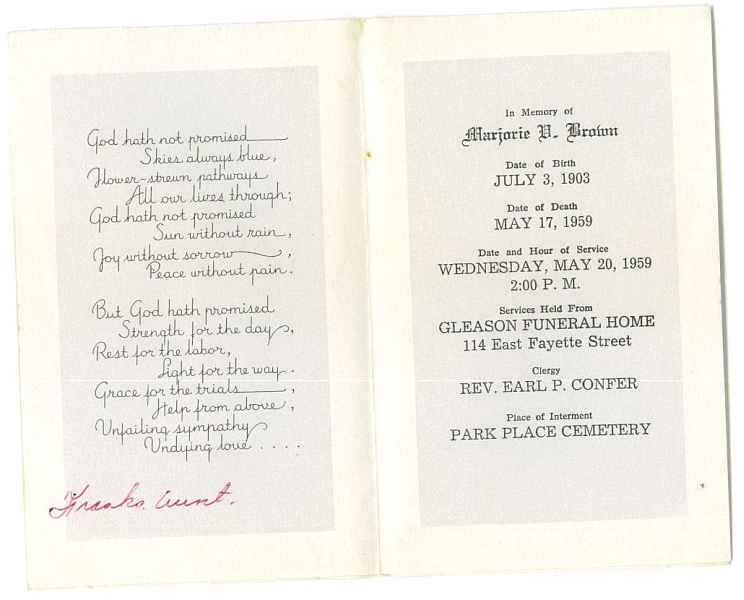 God hath not promised
Skies always blue,
Flower-strewn pathways
All our lives through;
God hath not promised
Sun without rain,
Joy without sorrow,
Peace without pain.
But God hath promised
Strength for the day,
Rest for the labor,
Light for the way.
Grace for the trials,
Help from above,
Unfailing sympathy
Undying love . . . .
Franks Aunt.
In Memory of
Marjorie V. Brown
Date of Birth
JULY 3, 1903
Date of Death
MAY 17, 1959
Date and Hour of Service
WEDNESDAY, MAY 20, 1959
2:00 P. M.
Services Held From
GLEASON FUNERAL HOME
114 East Fayette Street
Clergy
REV. EARL P. CONFER
Place of Interment
PARK PLACE CEMETERY